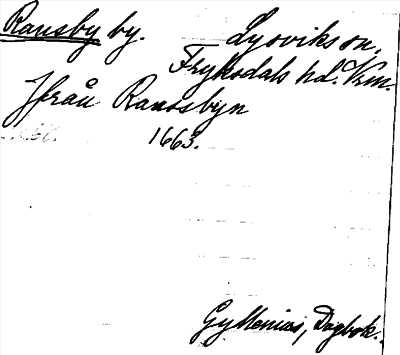 Ransby by. Lysviks sn.
Fryksdals hd. Vrm.
Ifrån Ransbyn
1663.
Gyllenius, Dagbok.